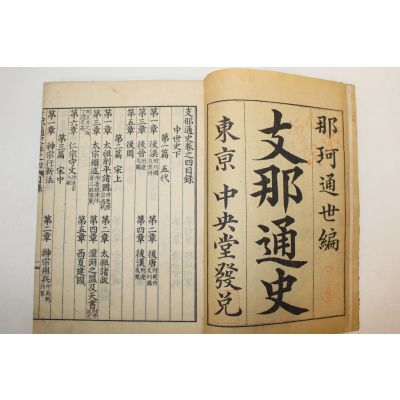 那珂通世編
支那通史
東京 中央堂發兌
支那通史卷之四目録
中世史下
第一篇 五代
第一章 後梁
第二章 後唐
第三章 後晉
第四章 後漢
第五章 後周
第二篇 宋上
第一章 太祖削平諸國
第二章 太祖諸政
第三章 太宗繼述
第四章 澶淵之盟及天書
第五章 西夏建國
第六章 仁宗守文
第三篇 宋中
第一章 神宗行新法
第二章 神宗用兵